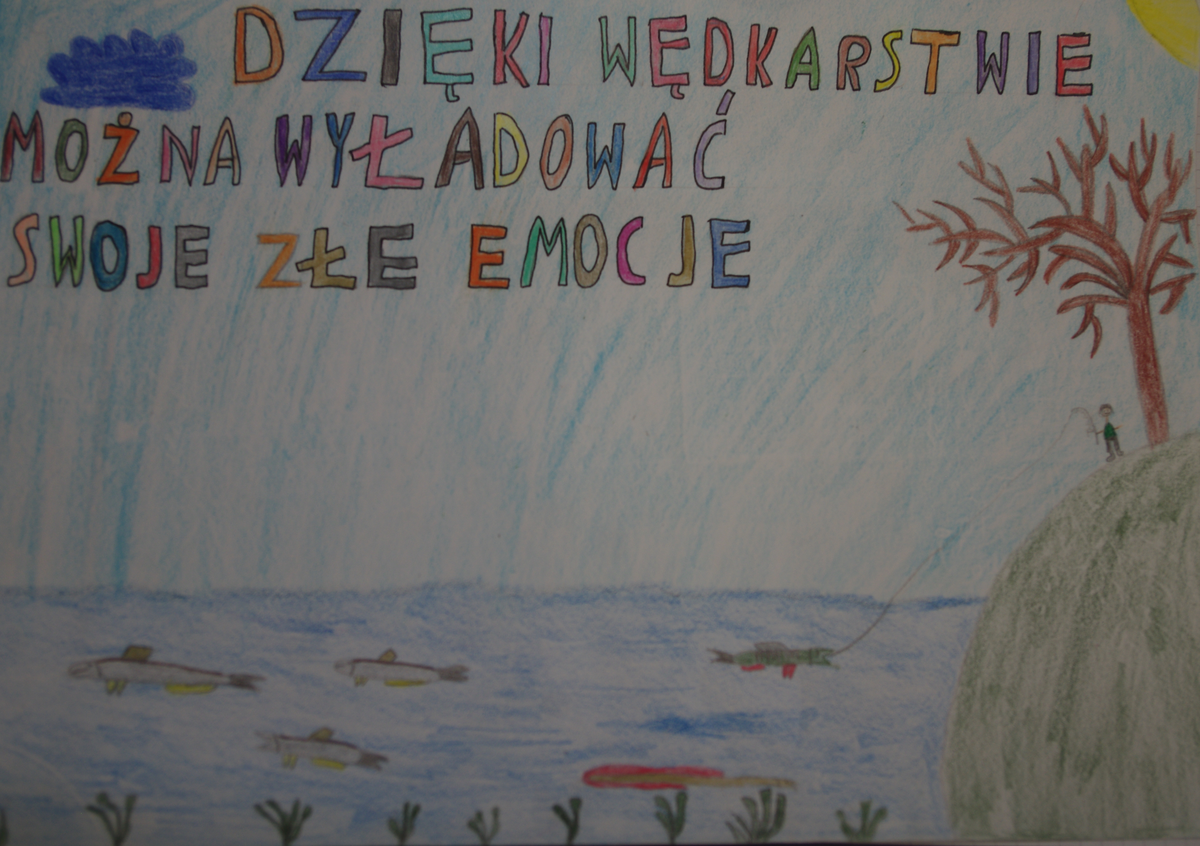 DZIĘKI WĘDKARSTWIE
MOŻNA WYŁADOWAĆ
SWOJE ZŁE EMOCJE